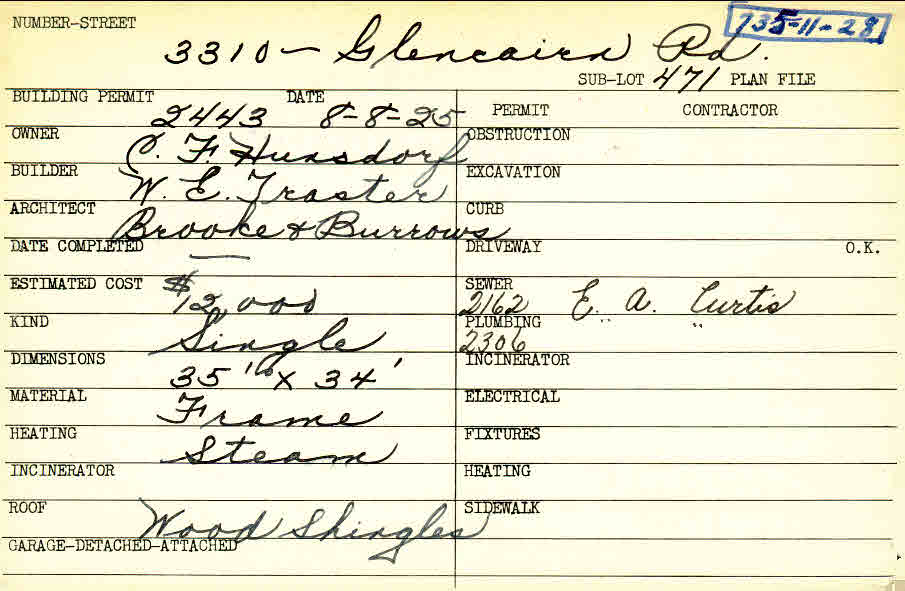 NUMBER-STREET
735-11-28
3310 - Glencairn Rd.
SUB-LOT 471 PLAN FILE
BUILDING PERMIT DATE
2443 8-8-25
PERMIT CONTRACTOR
OWNER
C. F. Hunsdorf
OBSTRUCTION
BUILDER
W. E. Traster
EXCAVATION
ARCHITECT
Brooke & Burrows
CURB
DATE COMPLETED
—
DRIVEWAY O.K.
ESTIMATED COST
$12,000
SEWER
2162 E. A. Curtis
KIND
Single
PLUMBING
2306 " "
DIMENSIONS
35' x 34'
INCINERATOR
MATERIAL
Frame
ELECTRICAL
HEATING
Steam
FIXTURES
INCINERATOR
HEATING
ROOF
Wood Shingles
SIDEWALK
GARAGE-DETACHED-ATTACHED